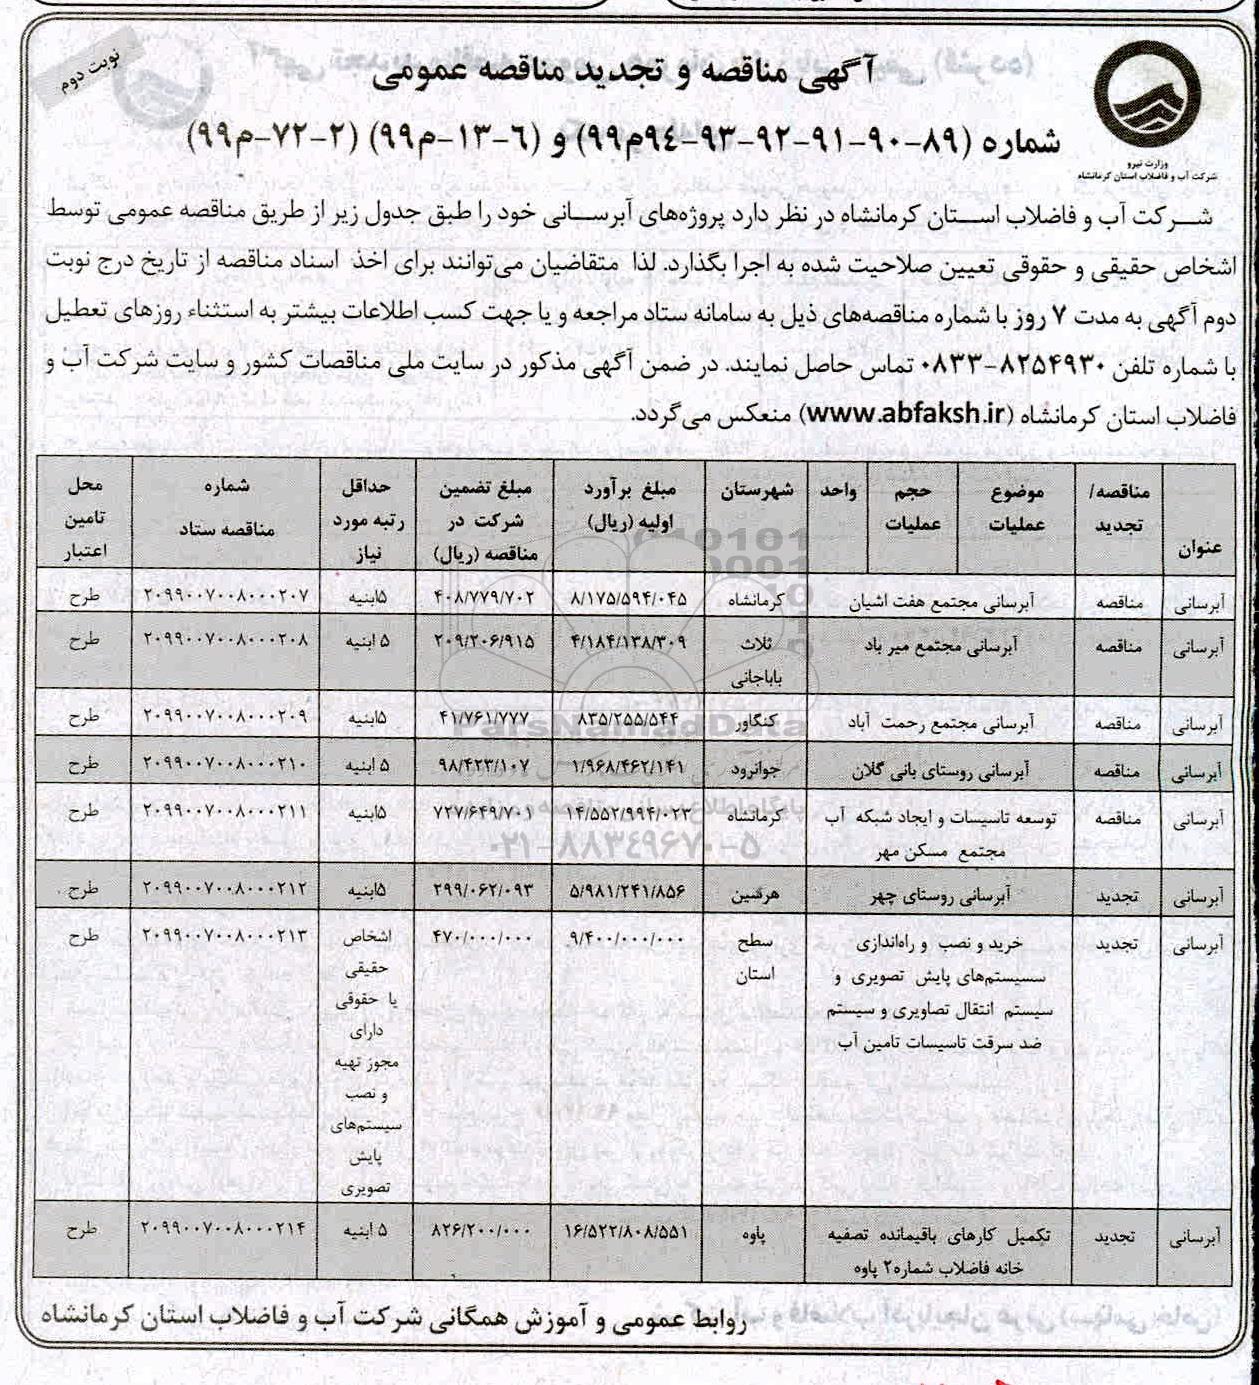 نوبت دوم
آگهی مناقصه و تجدید مناقصه عمومی
شماره (۸۹-۹۰-۹۱-۹۲-۹۳-۹۴م۹۹) و (۶-۱۳-م۹۹) (۲-۷۲-م۹۹)
وزارت نیرو
شرکت آب و فاضلاب استان کرمانشاه
شرکت آب و فاضلاب استان کرمانشاه در نظر دارد پروژه‌های آبرسانی خود را طبق جدول زیر از طریق مناقصه عمومی توسط
اشخاص حقیقی و حقوقی تعیین صلاحیت شده به اجرا بگذارد. لذا متقاضیان می‌توانند برای اخذ اسناد مناقصه از تاریخ درج نوبت
دوم آگهی به مدت ۷ روز با شماره مناقصه‌های ذیل به سامانه ستاد مراجعه و یا جهت کسب اطلاعات بیشتر به استثناء روزهای تعطیل
با شماره تلفن ۸۲۵۴۹۳۰-۰۸۳۳ تماس حاصل نمایند. در ضمن آگهی مذکور در سایت ملی مناقصات کشور و سایت شرکت آب و
فاضلاب استان کرمانشاه (www.abfaksh.ir) منعکس می‌گردد.
عنوان مناقصه/تجدید موضوع عملیات حجم عملیات واحد شهرستان مبلغ برآورد اولیه (ریال) مبلغ تضمین شرکت در مناقصه (ریال) حداقل رتبه مورد نیاز شماره مناقصه ستاد محل تامین اعتبار
آبرسانی مناقصه آبرسانی مجتمع هفت اشیان کرمانشاه ۸/۱۷۵/۵۹۴/۰۴۵ ۴۰۸/۷۷۹/۷۰۲ ۵ابنیه ۲۰۹۹۰۰۷۰۰۸۰۰۰۲۰۷ طرح
آبرسانی مناقصه آبرسانی مجتمع میر باد ثلاث باباجانی ۴/۱۸۴/۱۳۸/۳۰۹ ۲۰۹/۲۰۶/۹۱۵ ۵ ابنیه ۲۰۹۹۰۰۷۰۰۸۰۰۰۲۰۸ طرح
آبرسانی مناقصه آبرسانی مجتمع رحمت آباد کنگاور ۸۳۵/۲۵۵/۵۴۴ ۴۱/۷۶۱/۷۷۷ ۵ابنیه ۲۰۹۹۰۰۷۰۰۸۰۰۰۲۰۹ طرح
آبرسانی مناقصه آبرسانی روستای بانی گلان جوانرود ۱/۹۶۸/۴۶۲/۱۴۱ ۹۸/۴۲۳/۱۰۷ ۵ ابنیه ۲۰۹۹۰۰۷۰۰۸۰۰۰۲۱۰ طرح
آبرسانی مناقصه توسعه تاسیسات و ایجاد شبکه آب مجتمع مسکن مهر کرمانشاه ۱۴/۵۵۲/۹۹۴/۰۲۳ ۷۲۷/۶۴۹/۷۰۱ ۵ابنیه ۲۰۹۹۰۰۷۰۰۸۰۰۰۲۱۱ طرح
آبرسانی تجدید آبرسانی روستای چهر هرسین ۵/۹۸۱/۲۴۱/۸۵۶ ۲۹۹/۰۶۲/۰۹۳ ۵ابنیه ۲۰۹۹۰۰۷۰۰۸۰۰۰۲۱۲ طرح
آبرسانی تجدید خرید و نصب و راه‌اندازی سسیستم‌های پایش تصویری و سیستم انتقال تصاویری و سیستم ضد سرقت تاسیسات تامین آب سطح استان ۹/۴۰۰/۰۰۰/۰۰۰ ۴۷۰/۰۰۰/۰۰۰ اشخاص حقیقی یا حقوقی دارای مجوز تهیه و نصب سیستم‌های پایش تصویری ۲۰۹۹۰۰۷۰۰۸۰۰۰۲۱۳ طرح
آبرسانی تجدید تکمیل کارهای باقیمانده تصفیه خانه فاضلاب شماره۲ پاوه پاوه ۱۶/۵۲۲/۸۰۸/۵۵۱ ۸۲۶/۲۰۰/۰۰۰ ۵ ابنیه ۲۰۹۹۰۰۷۰۰۸۰۰۰۲۱۴ طرح
ParsNamadData
۰۲۱-۸۸۳۴۹۶۷۰-۵
روابط عمومی و آموزش همگانی شرکت آب و فاضلاب استان کرمانشاه